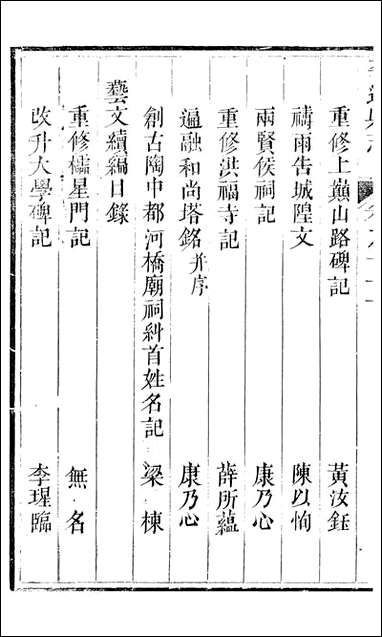 重修上巔山路碑記 黃汝鈺
禱雨告城隍文 陳以恂
兩賢侯祠記 康乃心
重修洪福寺記 薛所蘊
遍融和尚塔銘并序 康乃心
創古陶中都河橋廟祠糾首姓名記 梁棟
藝文續編目錄
重修櫺星門記 無名
改升大學碑記 李瑆臨